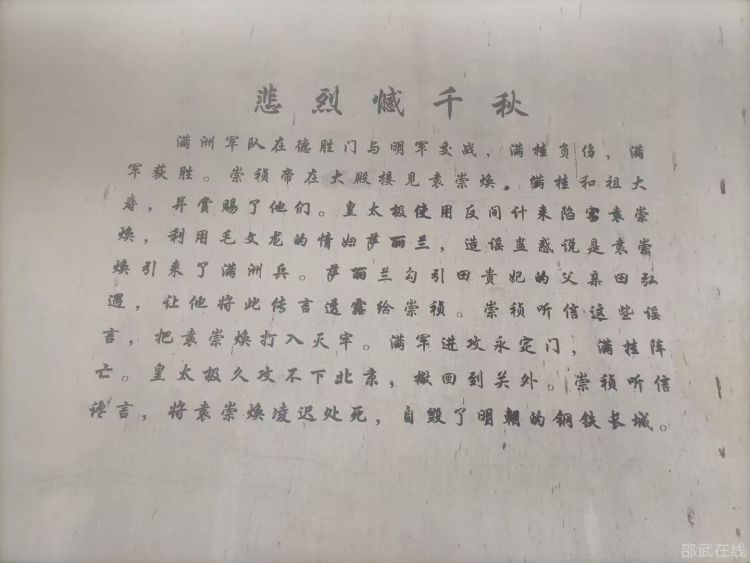 悲烈憾千秋
满洲军队在德胜门与明军交战，满桂负伤，满
军获胜。崇祯帝在大殿接见袁崇焕，满桂和祖大
寿，并赏赐了他们。皇太极使用反间计来陷害袁崇
焕，利用毛文龙的情妇萨丽兰，造谣蛊惑说是袁崇
焕引来了满洲兵。萨丽兰勾引田贵妃的父亲田弘
遇，让他将此传言透露给崇祯。崇祯听信这些谣
言，把袁崇焕打入天牢。满军进攻永定门，满桂阵
亡。皇太极久攻不下北京，撤回到关外。崇祯听信
谗言，将袁崇焕凌迟处死，自毁了明朝的钢铁长城。
邵武在线